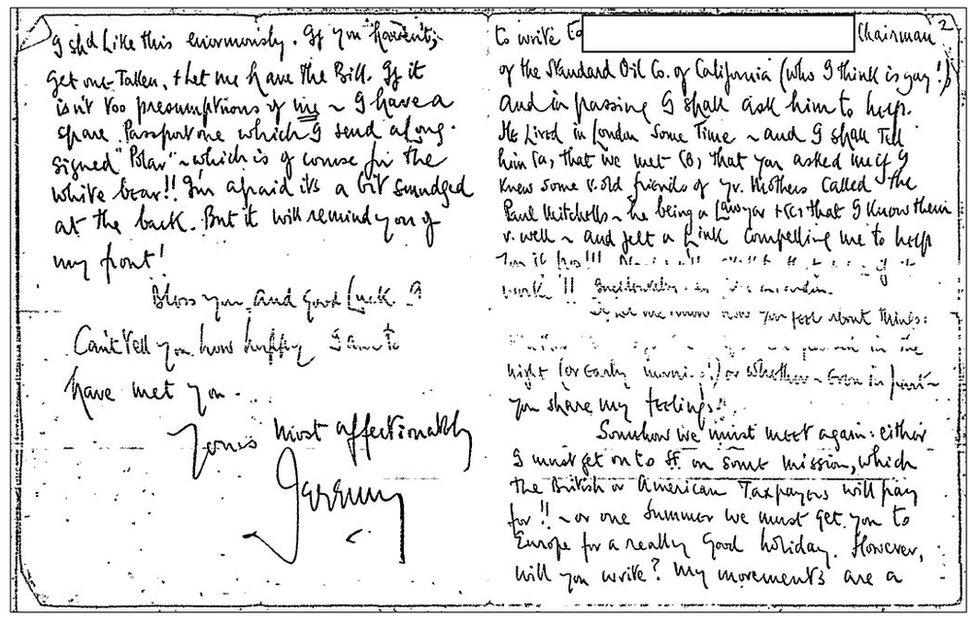 I shd Like this enormously. If you haven't,
get one Taken, + Let me have the Bill. If it
isn't too presumptious of me ~ I have a
spare Passport one which I send along.
Signed "Polar" ~ which is of course for the
white bear!! I'm afraid it's a bit smudged
at the back. But it will remind you of
my front!
Bless you and Good Luck. I
Can't Tell you how happy I am to
have met you.
Yours most affectionately
Jeremy
2
to write to Chairman
of the Standard Oil Co. of California (who I think is gay!)
and in passing I shall ask him to help.
He Lived in London some Time ~ and I shall Tell
him (a) that we met (B) that you asked me if I
knew some v. old friends of yr. Mothers Called the
Paul Mitchells ~ he being a Lawyer + (c) that I know them
v. well ~ and felt a Link compelling me to help
work!!
me know how you feel about things:
in the
night (or early morning!) or whether ~ even in part ~
you share my feelings.
Somehow we must meet again: either
I must get on to SF. on some mission, which
the British or American Taxpayers will pay
for!! ~ or one Summer we must get you to
Europe for a really Good holiday. However,
will you write? My movements are a